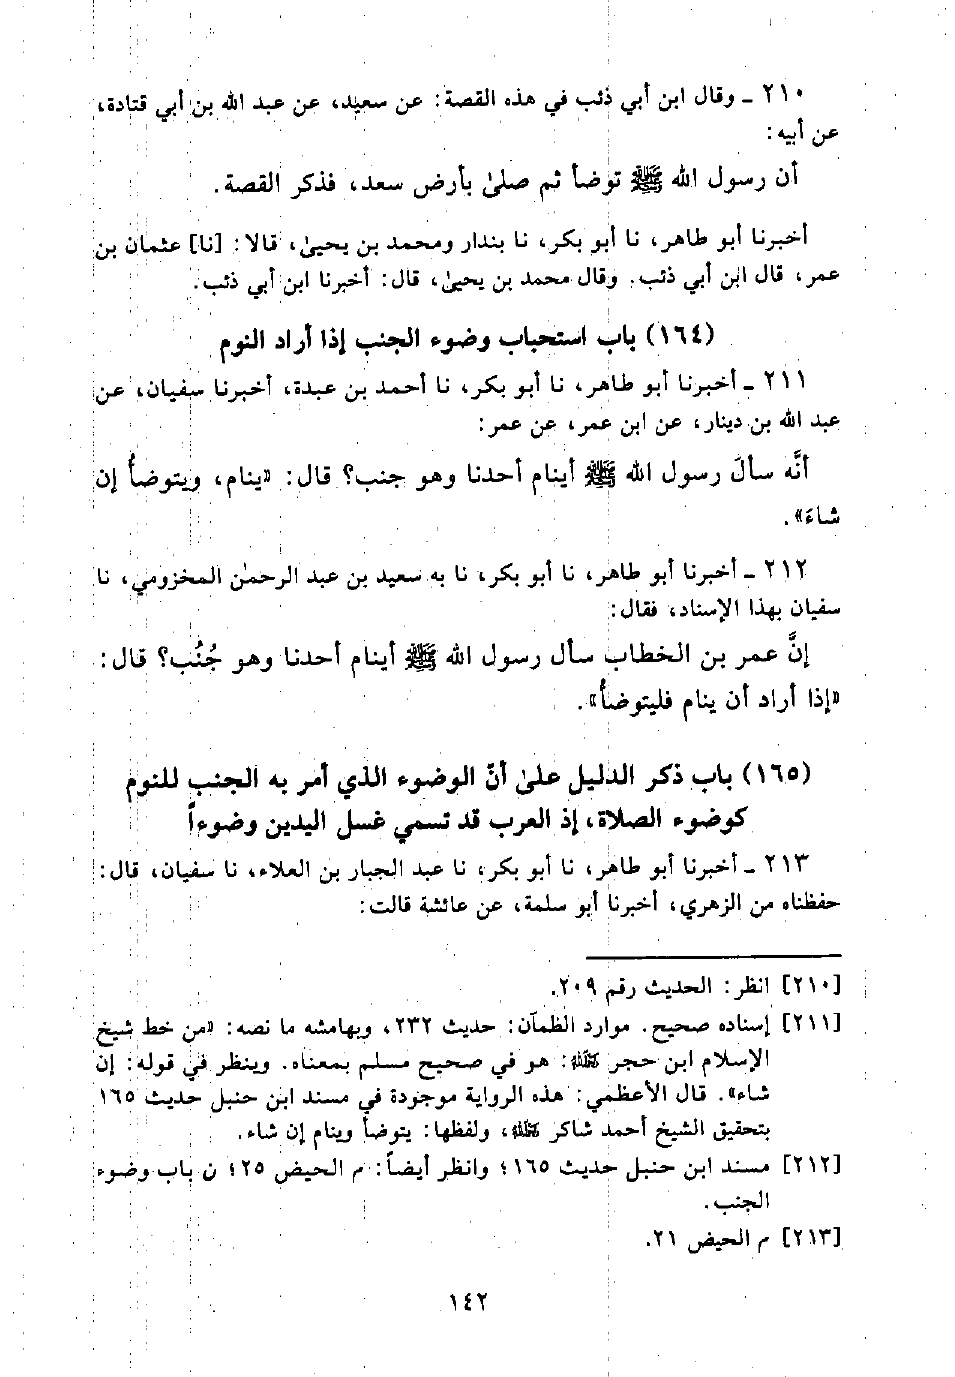 ٢١٠ ـ وقال ابن أبي ذئب في هذه القصة: عن سعيد، عن عبد الله بن أبي قتادة،
عن أبيه:
أن رسول الله ﷺ توضأ ثم صلىٰ بأرض سعد، فذكر القصة.
أخبرنا أبو طاهر، نا أبو بكر، نا بندار ومحمد بن يحيىٰ، قالا: [نا] عثمان بن
عمر، قال ابن أبي ذئب. وقال محمد بن يحيىٰ، قال: أخبرنا ابن أبي ذئب.
(١٦٤) باب استحباب وضوء الجنب إذا أراد النوم
٢١١ ـ أخبرنا أبو طاهر، نا أبو بكر، نا أحمد بن عبدة، أخبرنا سفيان، عن
عبد الله بن دينار، عن ابن عمر، عن عمر:
أنَّه سألَ رسول الله ﷺ أينام أحدنا وهو جنب؟ قال: «ينام، ويتوضأُ إن
شاءَ».
٢١٢ ـ أخبرنا أبو طاهر، نا أبو بكر، نا به سعيد بن عبد الرحمٰن المخزومي، نا
سفيان بهذا الإسناد، فقال:
إنَّ عمر بن الخطاب سأل رسول الله ﷺ أينام أحدنا وهو جُنُب؟ قال:
«إذا أراد أن ينام فليتوضأُ».
(١٦٥) باب ذكر الدليل علىٰ أنّ الوضوء الذي أمر به الجنب للنوم
كوضوء الصلاة، إذ العرب قد تسمي غسل اليدين وضوءاً
٢١٣ ـ أخبرنا أبو طاهر، نا أبو بكر، نا عبد الجبار بن العلاء، نا سفيان، قال:
حفظناه من الزهري، أخبرنا أبو سلمة، عن عائشة قالت:
[٢١٠] انظر: الحديث رقم ٢٠٩.
[٢١١] إسناده صحيح. موارد الظمآن: حديث ٢٣٢، وبهامشه ما نصه: «من خط شيخ
الإسلام ابن حجر رحمه الله: هو في صحيح مسلم بمعناه. وينظر في قوله: إن
شاء». قال الأعظمي: هذه الرواية موجودة في مسند ابن حنبل حديث ١٦٥
بتحقيق الشيخ أحمد شاكر رحمه الله، ولفظها: يتوضأ وينام إن شاء.
[٢١٢] مسند ابن حنبل حديث ١٦٥؛ وانظر أيضاً: م الحيض ٢٥؛ ن باب وضوء
الجنب.
[٢١٣] م الحيض ٢١.
١٤٢